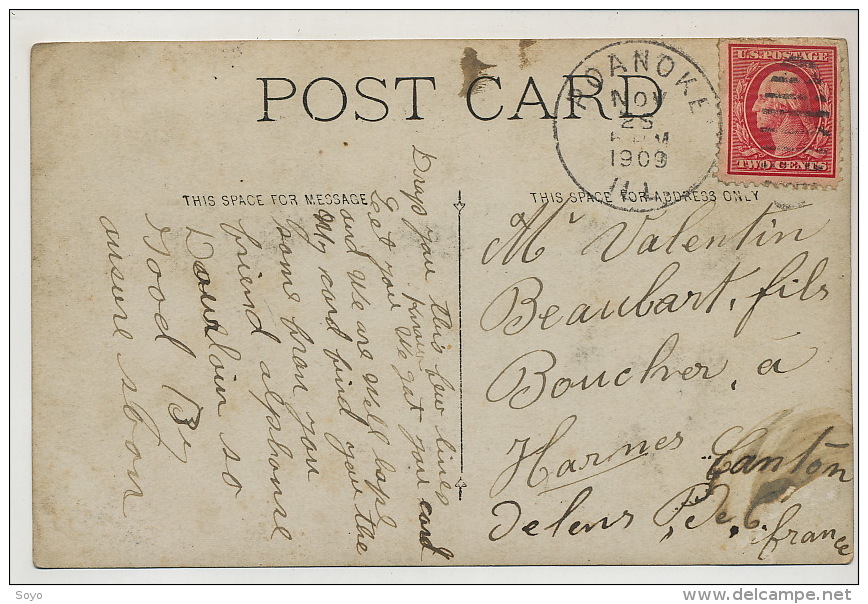 POST CARD
ROANOKE
NOV
25
M
1909
ILL.
U.S. POSTAGE
TWO CENTS
THIS SPACE FOR MESSAGE
THIS SPACE FOR ADDRESS ONLY
Drop you this few lines
Let you know We got you card
and We are Well hope
My card find you the
same from you
friend alphonse
Douloin so
Good By
ansure shon
Mr Valentin
Beaubart, fils
Boucher, à
Harnes Canton
delens P. de C.
france
Soyo
www.delcampe.net